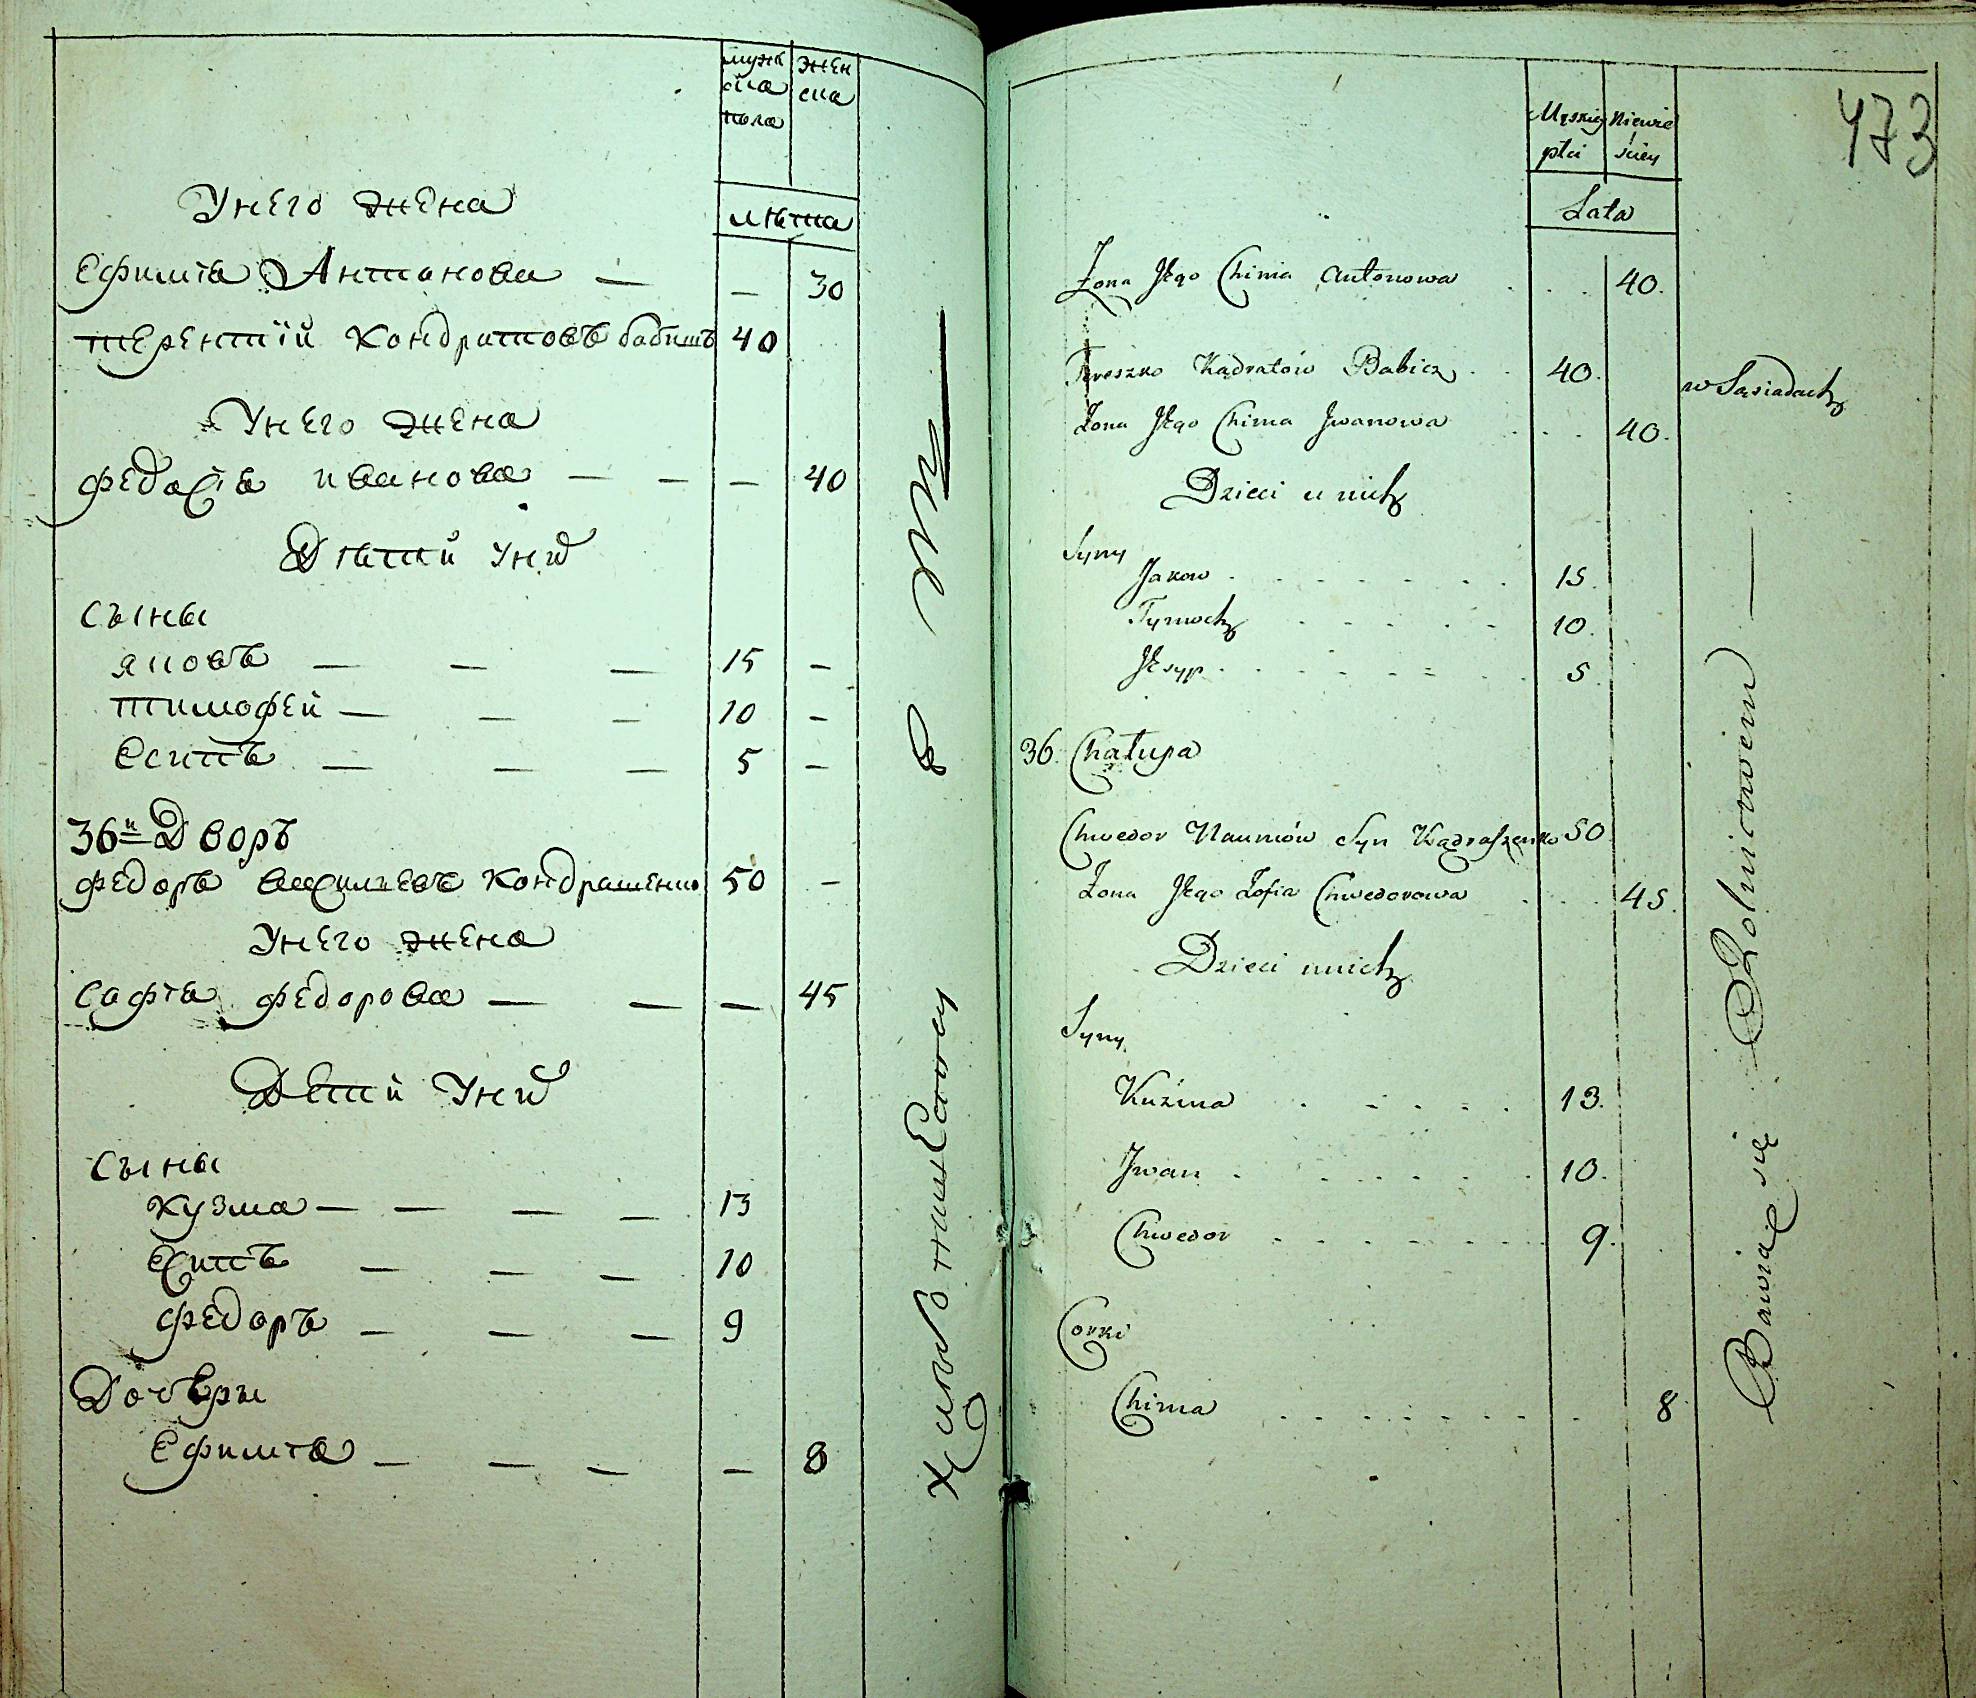 мужеска пола
женска
лѣта
У него жена
Ефимїа Антонова — — 30
Терентїй Кондратовъ бабичъ 40
У него жена
Федосїа иванова — — — 40
Дѣтей у ниⷯ
Сыны
яковъ — — — 15 —
тимофей — — — 10 —
Есипъ — — — 5 —
36й Дворъ
Федоръ Кондрашенко 50 —
У него жена
Софїа Федорова — — — 45
Детей у ниⷯ
Сыны
Кузма — — — — 13
Есипъ — — — 10
Федоръ — — — 9
Дочери
Ефимїа — — — — 8
473
Męskiey płci
Niewieściey
Lata
Żona Jego Chima Antonowa . . . 40.
Tereszko Kądratów Babicz . . 40. w Sąsiadach
Żona Jego Chima Jwanowa . . . 40.
Dzieci u nich
Syny
Jakow . . . . . . . 15.
Tymoch . . . . . 10.
Jesyp . . . . . . . 5.
36. Chałupa
Chwedor Naumów Syn Kądraszenko 50
Żona Jego Zofia Chwedorowa . . . 45.
Dzieci u nich
Syny
Kuźma . . . . . 13.
Jwan . . . . . . 10.
Chwedor . . . . . . . 9.
Corki
Chima . . . . . . . . 8
Bawiąc się Rolnictwem —